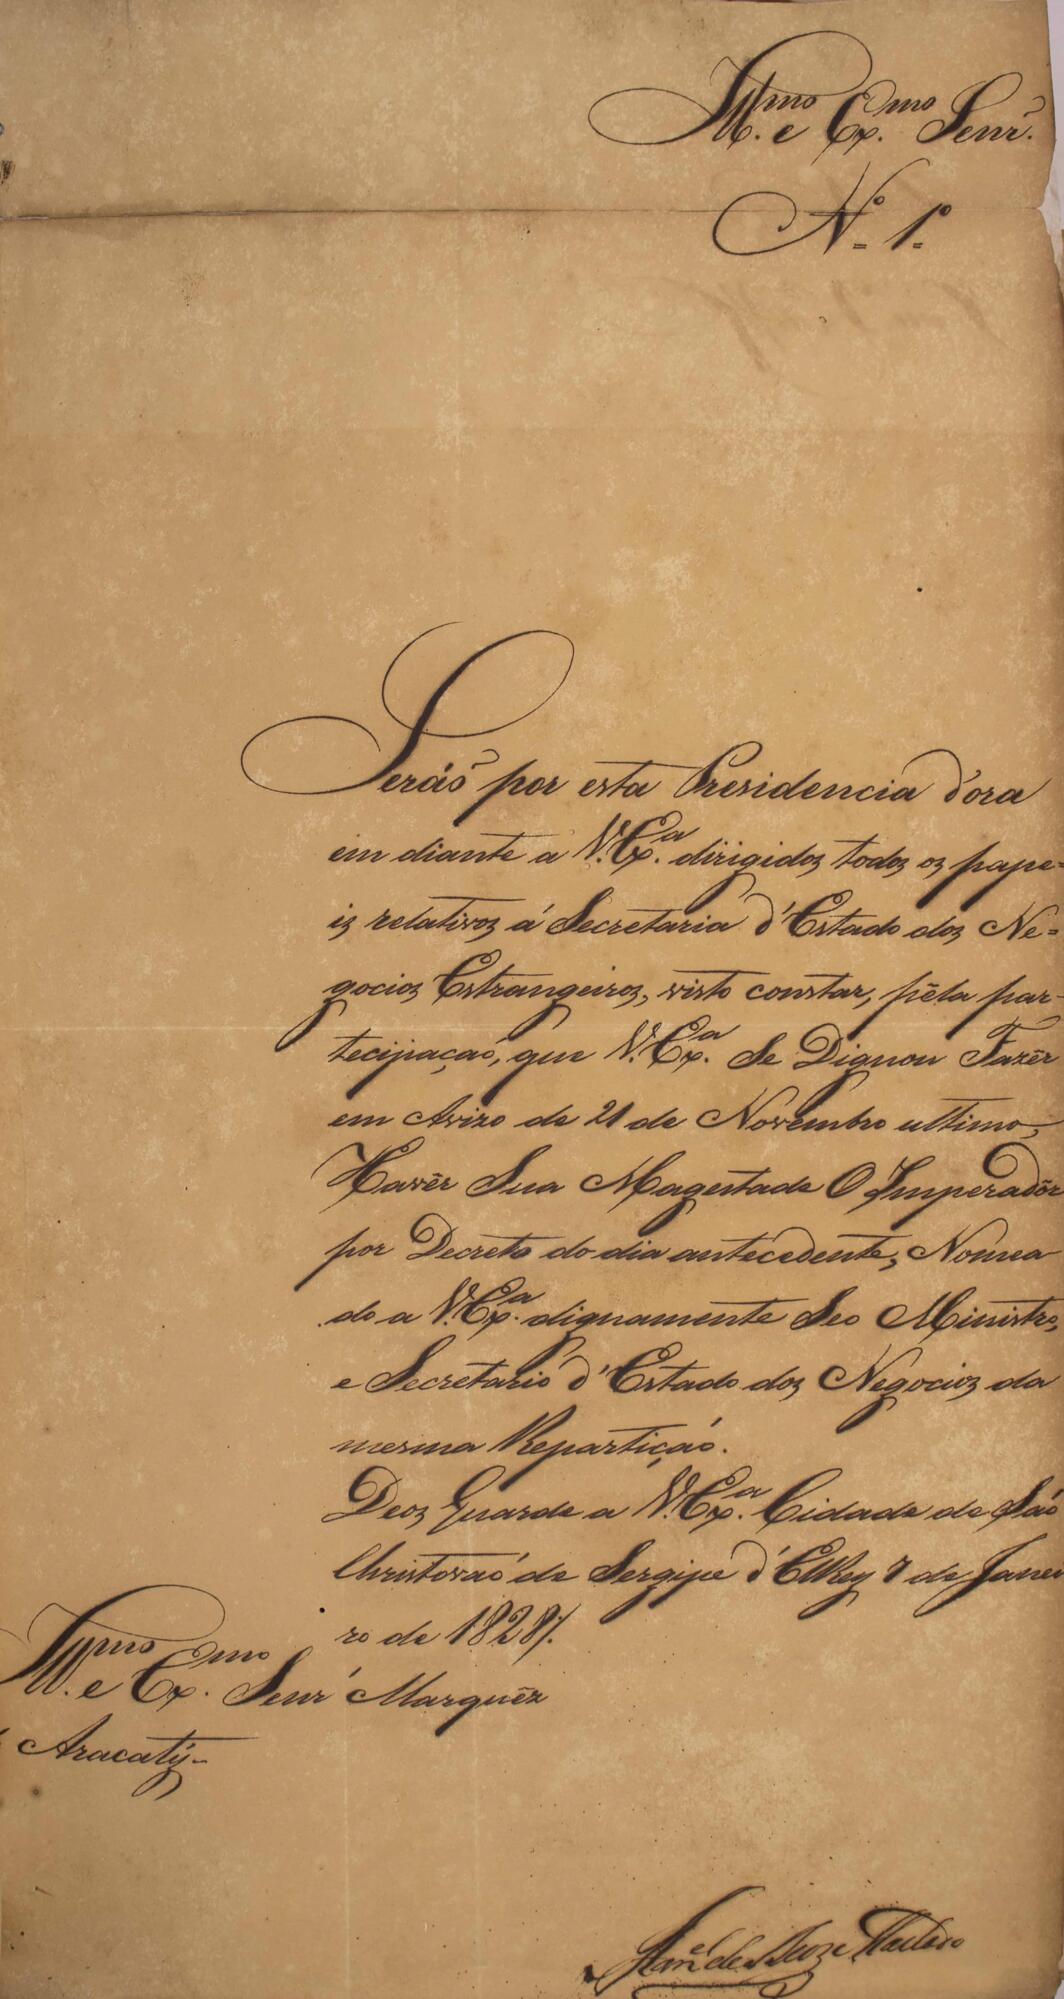 Ill.mo e Ex.mo Senr.
N.o 1.o
Seráõ por esta Presidencia d'ora
em diante a V. Ex.a dirigidos todos os pape=
is relativos á Secretaria d'Estado dos Ne=
gocios Estrangeiros, visto constar, pēla par-
tecipaçaõ, que V. Ex.a Se Dignou Fazēr
em Avizo de 21 de Novembro ultimo,
Havēr Sua Magestade O Imperadōr
por Decreto do dia antecedente, Nomea
do a V. Ex.a dignamente Seo Ministro,
e Secretario d'Estado dos Negocios da
mesma Repartiçaõ.
Deos Guarde a V. Ex.a Cidade de Saõ
Christovaõ de Sergipe d'ElRey 7 de Janei
ro de 1828 ∕.
Ill.mo e Ex.mo Senr Marquēz
Aracatÿ-
Man.el de